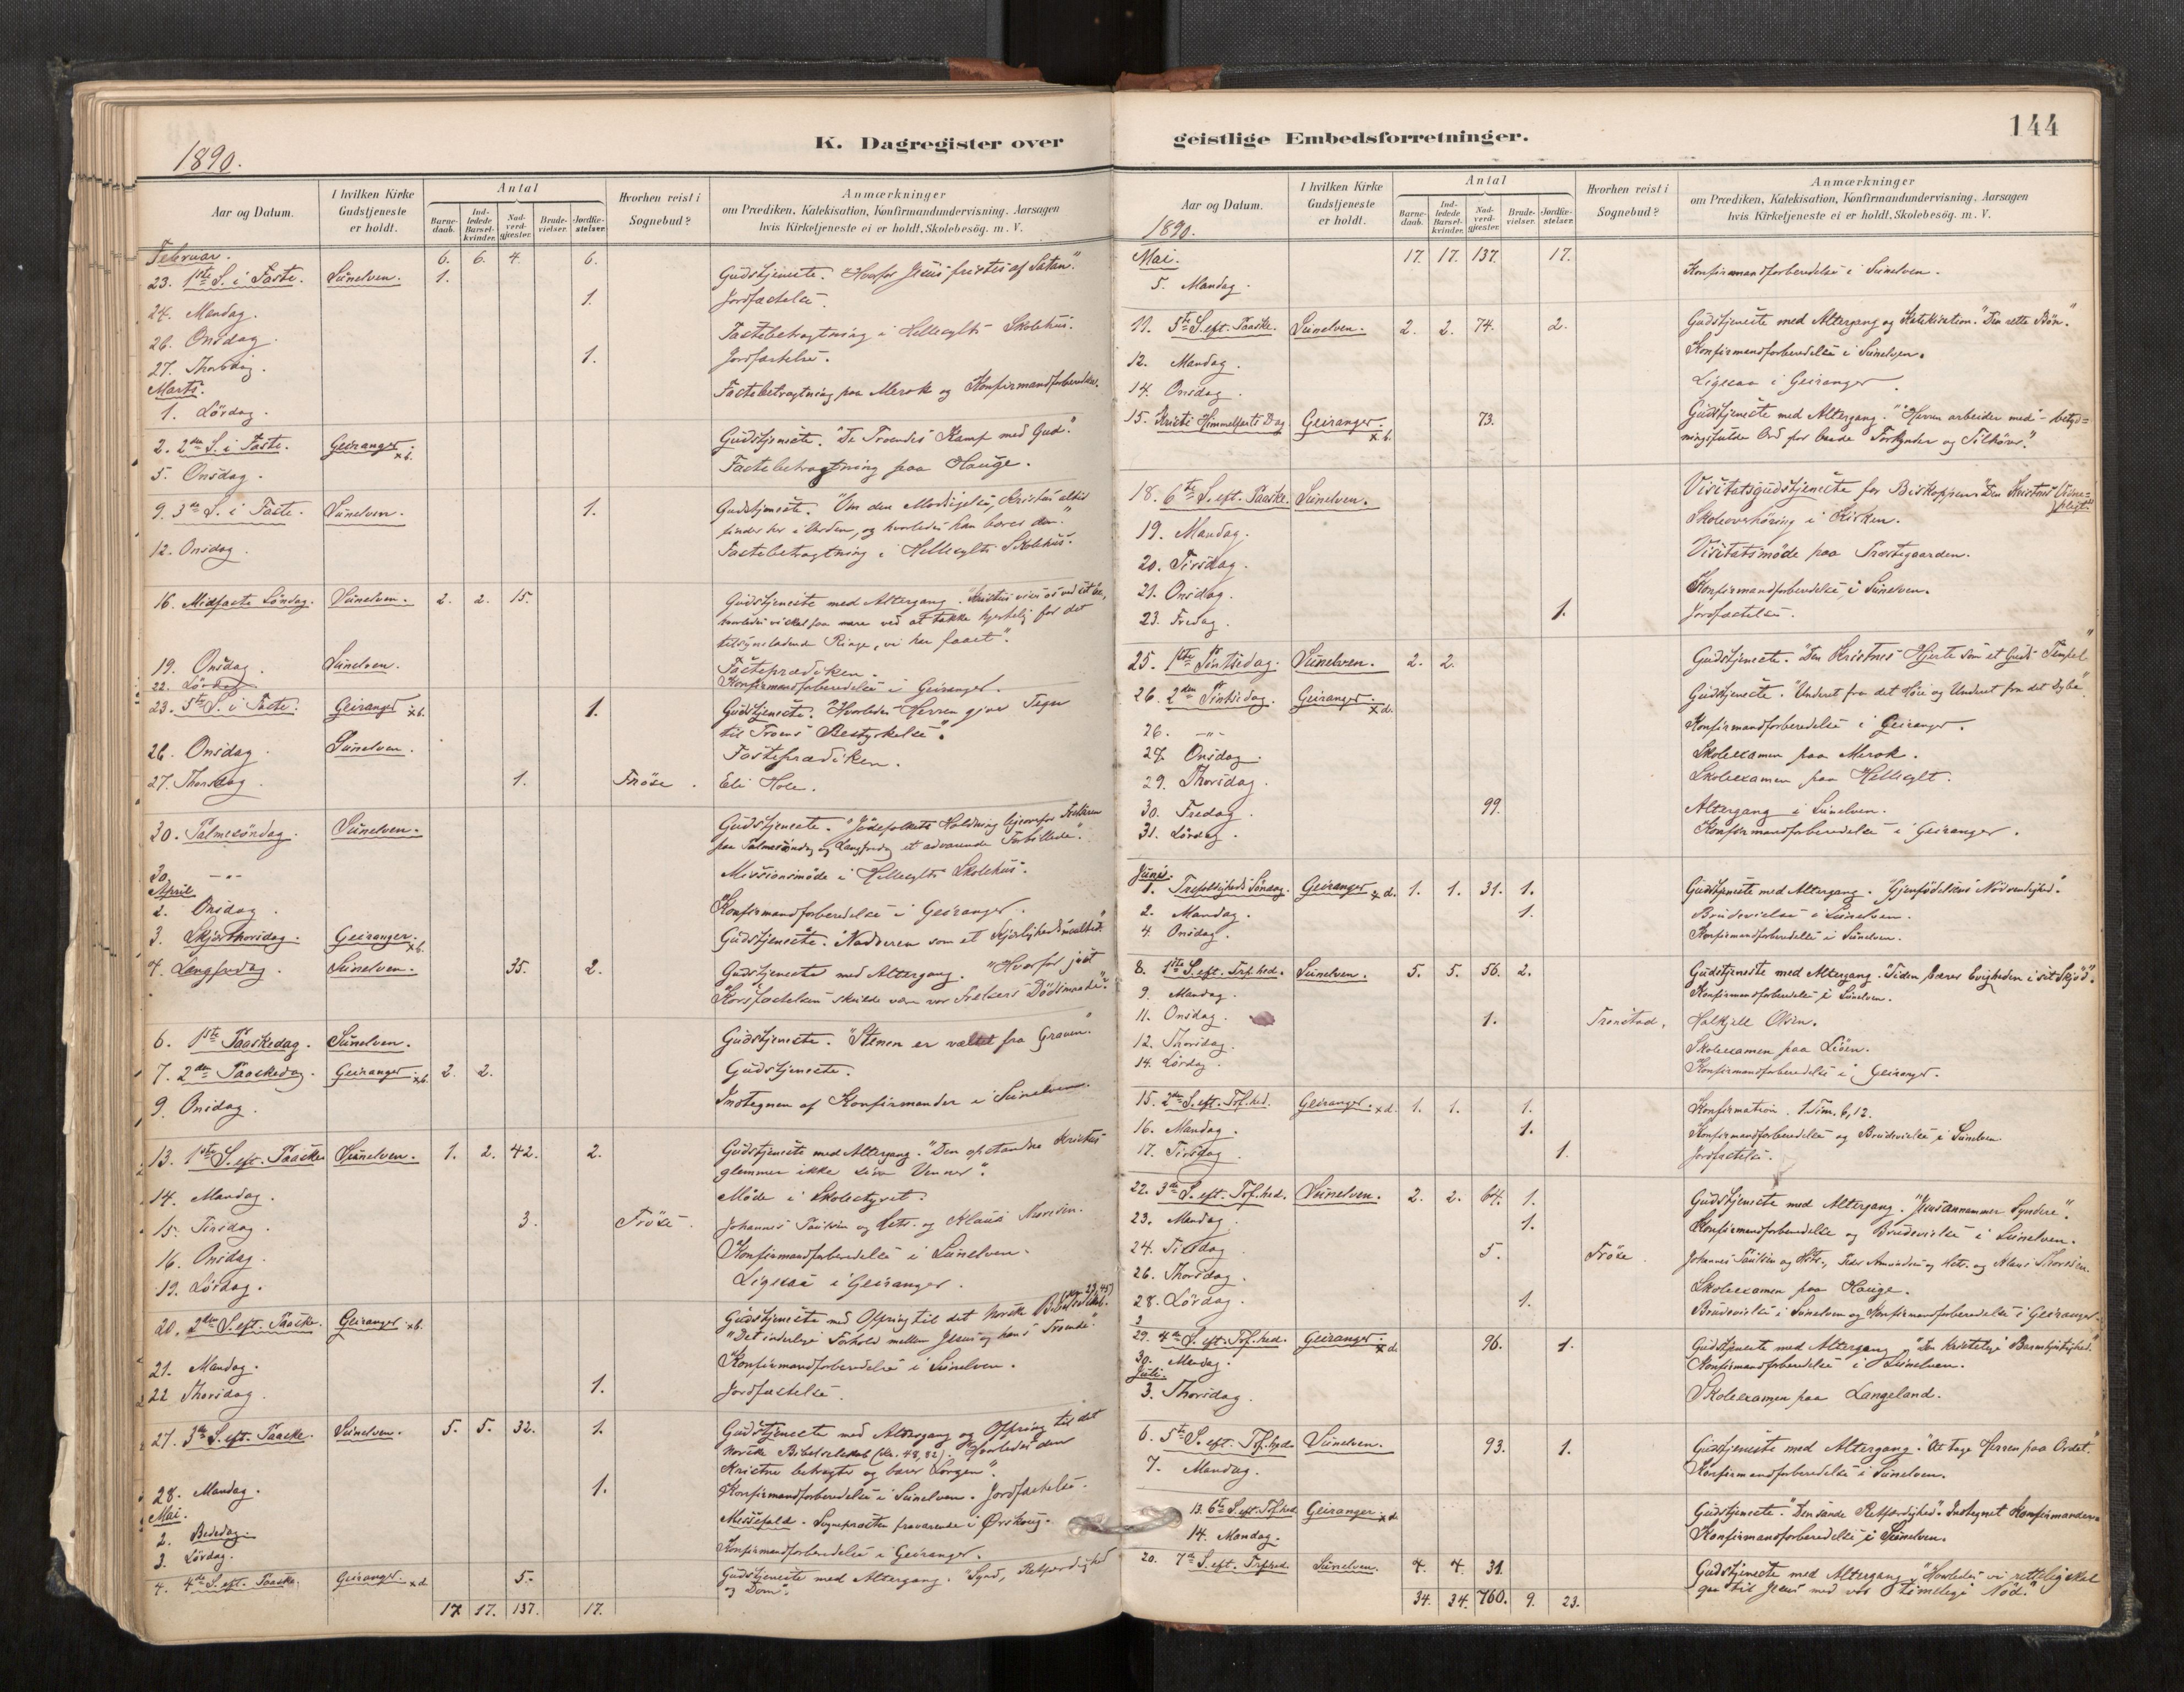 1890.
K. Dagregister over
Aar og Datum.
I hvilken Kirke
Gudstjeneste
er holdt.
Antal
Barne-
daab.
Ind-
ledede
Barsel-
kvinder.
Nad-
verd-
gjæster.
Brude-
vielser.
Jordfæ-
stelser.
Hvorhen reist i
Sognebud?
Anmærkninger
om Prædiken, Katekisation, Konfirmandundervisning, Aarsagen
hvis Kirketjeneste ei er holdt, Skolebesøg. m. V.
Februar. 6. 6. 4. 6.
23. 1ste S. i Faste. Sunelven. 1. Gudstjeneste. "Hvorfor Jesus fristes af Satan."
24. Mandag. 1. Jordfæstelse.
26. Onsdag. Fastebetragtning i Hellesylts Skolehus.
27. Thorsdag. 1. Jordfæstelse.
Marts.
1. Lördag. Fastebetragtning paa Merok og Konfirmandforberedelse.
2. 2den S. i Faste. Geiranger. x b. Gudstjeneste. "De Troendes Kamp med Gud."
5. Onsdag. Fastebetragtning paa Hauge.
9. 3die S. i Faste. Sunelven. 1. Gudstjeneste. "Om den Modsigelse, Kristus altid
finder her i Verden, og hvorledes han bærer den."
12. Onsdag. Fastebetragtning i Hellesylts Skolehus.
16. Midfaste Söndag. Sunelven. 2. 2. 15. Gudstjeneste med Altergang. "Kristus viser os ved sit
hvorledes vi skal faa mere ved at takke hjertelig for det
tilsyneladende Ringe, vi har faaet".
19. Onsdag. Sunelven. Fasteprædiken.
22. Lördag. Konfirmandforberedelse i Geiranger.
23. 5te S. i Faste. Geiranger x b. 1. Gudstjeneste. "Hvorledes Herren giver Tegn
til Troens Bestyrkelse".
26. Onsdag. Sunelven. Fasteprædiken.
27. Thorsdag. 1. Fröse. Eli Hole.
30. Palmesöndag. Sunelven. Gudstjeneste. "Jödefolkets Holdning ligeoverfor Frelseren
paa Palmesöndag og Langfredag et advarende Forbillede".
30. -"- Missionsmöde i Hellesylts Skolehus.
April
2. Onsdag. Konfirmandforberedelse i Geiranger.
3. Skjærthorsdag. Geiranger. x b. Gudstjeneste. "Nadveren som et Kjærlighedsmaaltid"
4. Langfredag. Sunelven. 35. 2. Gudstjeneste med Altergang. "Hvorfor just
Korsfæstelsen skulde være vor Frelsers Dödsmaade".
6. 1ste Paaskedag. Sunelven. Gudstjeneste. "Stenen er væltet fra Graven."
7. 2den Paaskedag. Geiranger. x b. 2. 2. Gudstjeneste.
9. Onsdag. Instegnen af Konfirmander i Sunelven.
13. 1ste S. eft. Paaske Sunelven. 1. 2. 42. 2. Gudstjeneste med Altergang. "Den opstandne Kristus
glemmer ikke sine Venner".
14. Mandag. Möde i Skolestyret.
15. Tirsdag. 3. Fröse. Johannes Paulsen og Hstr. og Klaus
16. Onsdag. Konfirmandforberedelse i Sunelven.
19. Lördag. Ligesaa i Geiranger.
20. 2den S. eft. Paaske. Geiranger x b. Gudstjeneste med Ofring til det Norske Bibelselskab.
"Det inderlige Forhold mellem Jesus og hans Troende".
21. Mandag. Konfirmandforberedelse i Sunelven.
22 Thorsdag. 1. Jordfæstelse.
27. 3die S. eft. Paaske. Sunelven. 5. 5. 32. 1. Gudstjeneste med Altergang og Ofring til det
norske Bibelselskab (Kr. 48,82). "Hvorledes den
Kristne betragter og bærer Sorgen".
28. Mandag. 1. Konfirmandforberedelse i Sunelven. Jordfæstelse.
Mai.
2. Bededag. Messefald. Sognepræsten fraværende i Ørskoug.
3. Lördag. Konfirmandforberedelse i Geiranger.
4. 4de S. eft. Paaske. Geiranger. x d. 5. Gudstjeneste med Altergang. "Synd, Retfærdighed
og Dom".
17. 17. 137. 17.
geistlige Embedsforretninger.
144
Aar og Datum.
I hvilken Kirke
Gudstjeneste
er holdt.
Antal
Barne-
daab.
Ind-
ledede
Barsel-
kvinder.
Nad-
verd-
gjæster.
Brude-
vielser.
Jordfæ-
stelser.
Hvorhen reist i
Sognebud?
Anmærkninger
om Prædiken, Katekisation, Konfirmandundervisning, Aarsagen
hvis Kirketjeneste ei er holdt, Skolebesøg. m. V.
1890.
Mai. 17. 17. 137. 17.
5. Mandag. Konfirmandforberedelse i Sunelven.
11. 5te S. eft. Paaske. Sunelven. 2. 2. 74. 2. Gudstjeneste med Altergang og Katekisation. "Den rette Bön".
12. Mandag. Konfirmandforberedelse i Sunelven.
14. Onsdag. Ligesaa i Geiranger.
15. Kristi Himmelfarts Dag Geiranger. x b. 73. Gudstjeneste med Altergang. "Herren arbeider med" - betyd-
ningsfulde Ord for baade Forkynder og Tilhörer".
18. 6te S. eft. Paaske. Sunelven. Visitatsgudstjeneste for Biskoppen. "Den Kristnes Vidne-
pligt."
Skoleoverhöring i Kirken.
19. Mandag. Visitatsmöde paa Præstegaarden.
20. Tirsdag.
21. Onsdag. Konfirmandforberedelse i Sunelven.
23. Fredag. 1. Jordfæstelse.
25. 1ste Pintsedag. Sunelven. 2. 2. Gudstjeneste. "Den Kristnes Hjerte som et Guds Tempel"
26. 2den Pintsedag. Geiranger. x d. Gudstjeneste. "Underet fra det Höie og Underet fra det Dybe".
26. -"- Konfirmandforberedelse i Geiranger.
27. Onsdag. Skoleexamen paa Merok.
29. Thorsdag. Skoleexamen paa Hellesylt.
30. Fredag. 99. Altergang i Sunelven.
31. Lördag. Konfirmandforberedelse i Geiranger.
Juni.
1. Trefoldigheds Söndag. Geiranger x d. 1. 1. 31. 1. Gudstjeneste med Altergang. "Gjenfödelsens Nödvendighed".
2. Mandag. 1. Brudevielse i Sunelven.
4. Onsdag. Konfirmandforberedelse i Sunelven.
8. 1ste S. eft. Tref.hed. Sunelven. 5. 5. 56. 2. Gudstjeneste med Altergang. "Tiden bærer Evigheden i sit Skjöd".
9. Mandag. Konfirmandforberedelse i Sunelven.
11. Onsdag. 1. Tronstad. Halkjell Olsen.
12. Thorsdag. Skoleexamen paa Liöen.
14. Lördag. Konfirmandforberedelse i Geiranger.
15. 2den S. eft. Tref.hed. Geiranger. x d. 1. 1. 1. Konfirmation. 1.Tim. 6,12.
16. Mandag. 1. Konfirmandforberedelse og Brudevielse i Sunelven
17. Tirsdag. 1. Jordfæstelse.
22. 3die S. eft. Tref.hed. Sunelven. 2. 2. 64. 1. Gudstjeneste med Altergang. "Jesus annammer Syndere".
23. Mandag. 1. Konfirmandforberedelse og Brudevielse i Sunelven.
24. Tirsdag 5. Fröse. Johannes Paulsen og Hstr., Peder Amundsen og Hstr. og Klaus
26. Thorsdag. Skoleexamen paa Hauge.
28. Lördag. 1. Brudevielse i Sunelven og Konfirmandforberedelse i Geiranger.
29. 4de S. eft. Tref.hed. Geiranger. x d. 96. 1. Gudstjeneste med Altergang. "Den kristelige Barmhjertighed."
30. Mandag. Konfirmandforberedelse i Sunelven.
Juli.
3. Thorsdag. Skoleexamen paa Langeland.
6. 5te S. eft. Tref.hed. Sunelven. 93. 1. Gudstjeneste med Altergang. "At tage Herren paa Ordet."
7. Mandag. Konfirmandforberedelse i Sunelven.
13. 6te S. eft. Tref.hed. Geiranger. x d. Gudstjeneste. "Den sande Retfærdighed". Instegnet Konfirmander.
14. Mandag. Konfirmandforberedelse i Sunelven.
20. 7de S. eft. Tref.hed. Sunelven. 4. 4. 31. Gudstjeneste med Altergang. "Hvorledes vi rettelig skal
gaa til Jesus med vor timelige Nöd".
34. 34. 760. 9. 23.